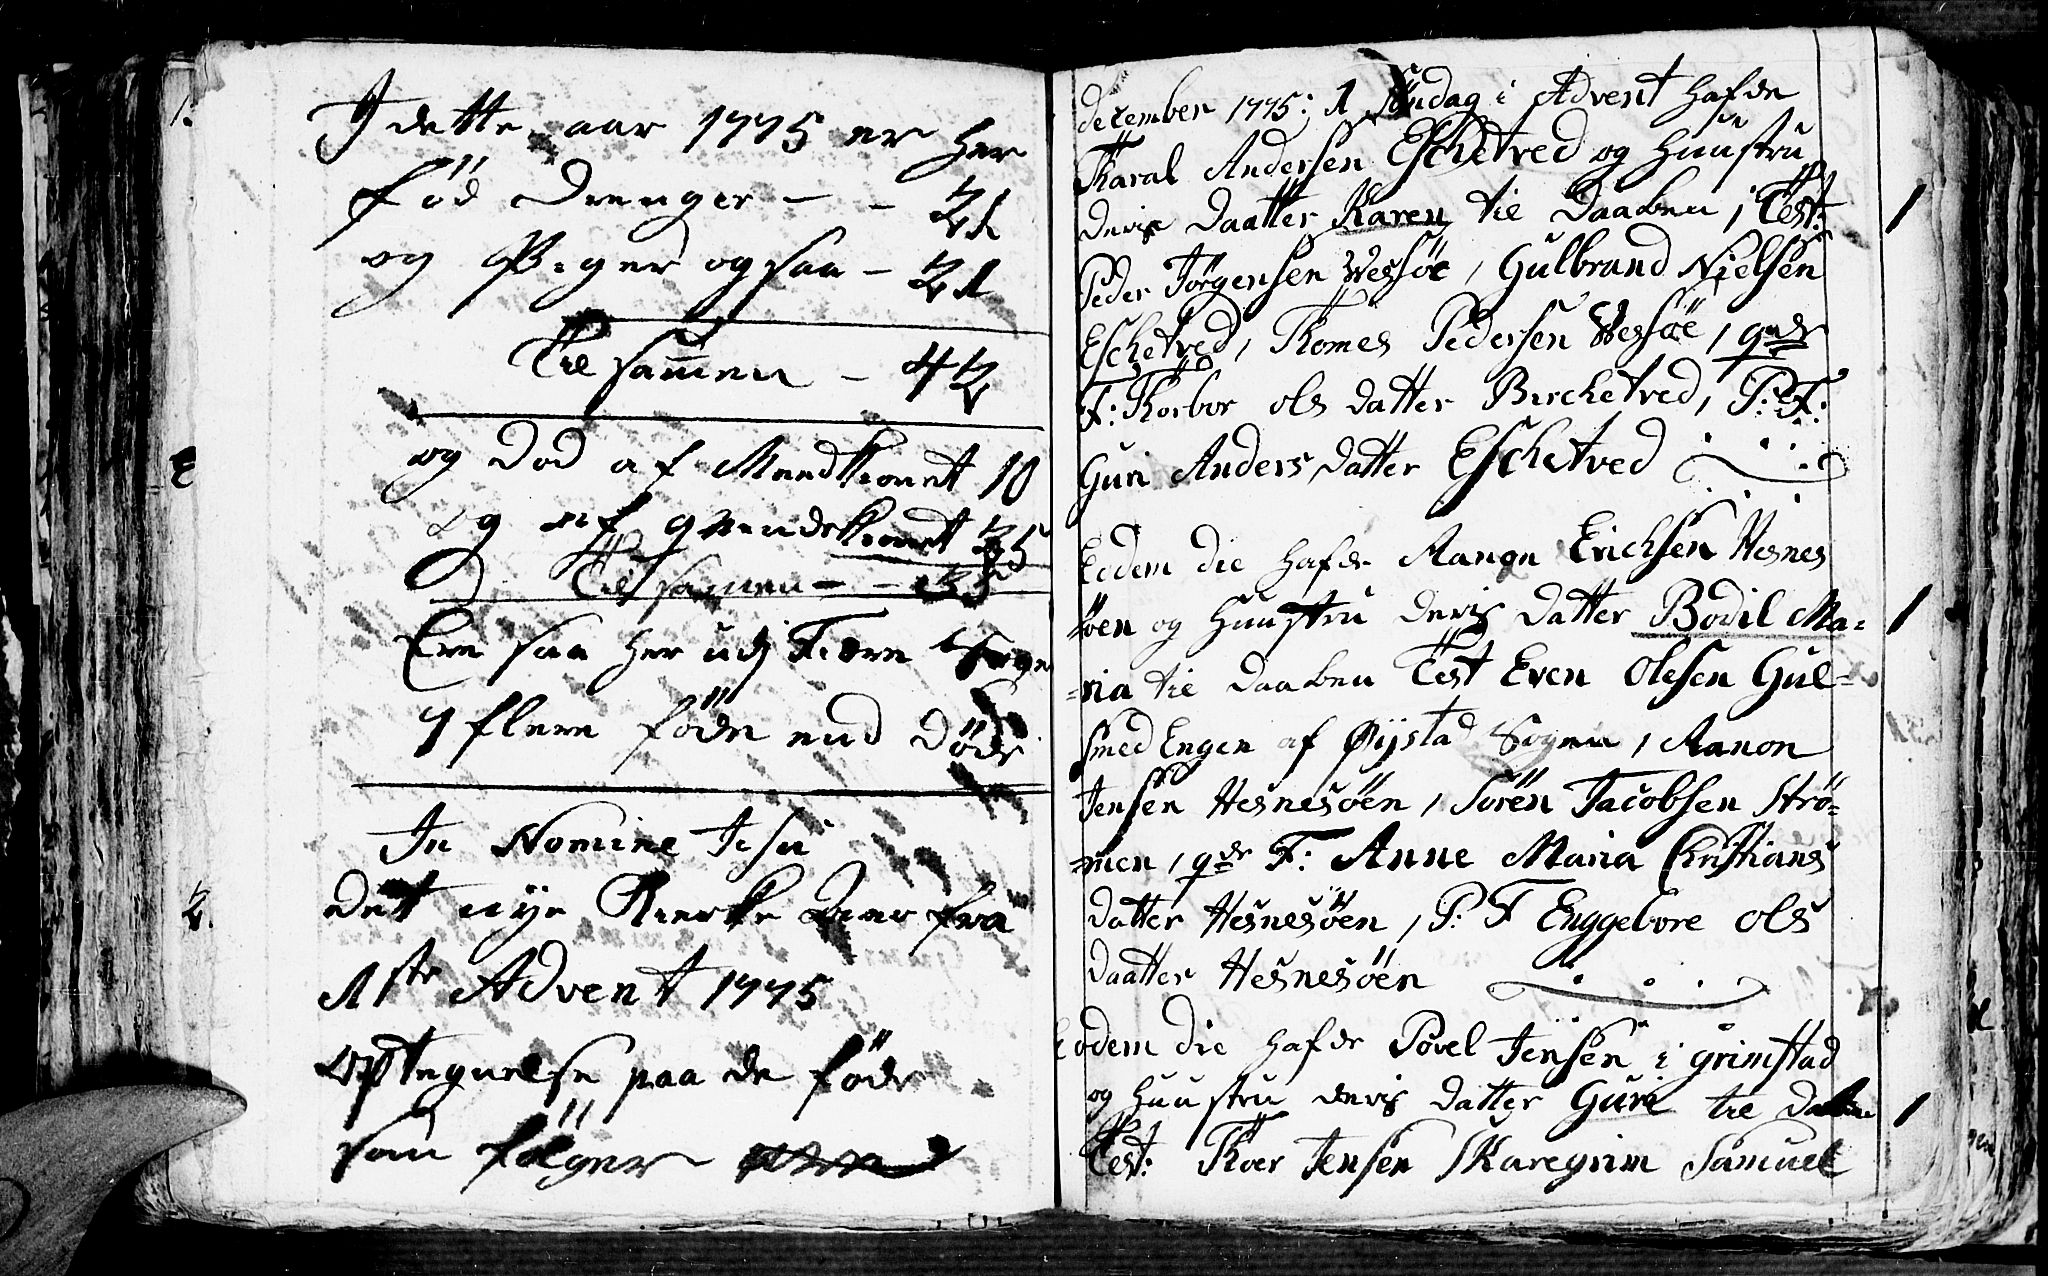 I dette aar 1775 er her
föd Drenger - - 21
og Piger ogsaa - 21
Til sammen - 42
og Död af Mandkiönet 10
og af qvindekiönet 25
Til samen - - 35
Ere saa her udj Fiære Sogn
7 flere föde end Döde
In Nomine Jesu
Det nye Kierke Aar fra
1ste Advent 1775
optegnelse paa de föde
som fölger
december 1775: 1 Söndag i Advent hafde
Tharal Andersen Eschetved og Huustru
deris Daatter Karen til Daaben, Test: 1
Peder Jörgensen Vessöe, Gulbrand Nielsen
Eschetved, Thomes Pedersen Vessöe, qnde
F: Thorbor ols datter Birchetved, P: F:
Guri Anders datter Eschetved
Eodem die hafde Aanon Erichsen Hesnes
öen og Huustru deris datter Bodil Ma= 1
=ria til daaben Test Even Olesen Gul=
smed Engen af Øijstad Sogen, Aanon
Jensen Hesnesöen, Sören Jacobsen Strö=
=men, qde F: Anne Maria Christians
datter Hesnesöen, P: F Enggebore ols
daatter Hesnesöen
Eodem die hafde Povel Jensen i grimstad
og Huustru deris datter Guri til daaben 1
Test: Thoer Jensen Skaregrim Samuel